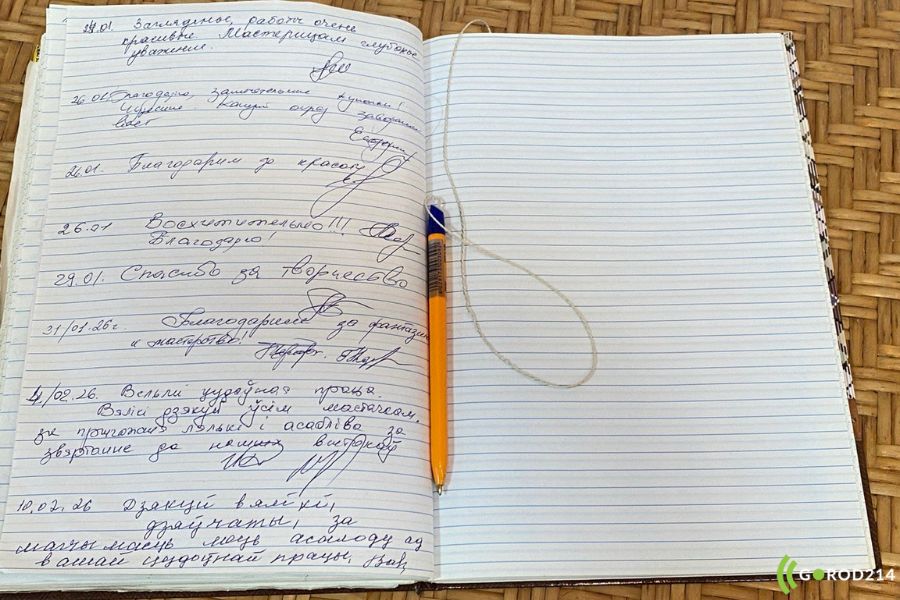 24.01. Загляденье, работы очень
красивые. Мастерицам глубокое
уважение.
26.01. Благодарю, замечательные куколки!
Чудесные
26.01. Благодарим за красоту
26.01 Восхитительно!!!
Благодарю!
29.01. Спасибо за творчество
31/01.26г. Благодарим за фантазию
и мастерство!
4/02.26. Вельмі цудоўная праца.
Вялікі дзякуй ўсім мастачкам,
за прыгожыя лялькі і асабліва за
звяртанне да нашых вытокаў
10.02.26 Дзякуй вялікі,
дзяўчаты, за
магчымасць моць асалоду ад
вашай цудоўнай працы.
GOROD214